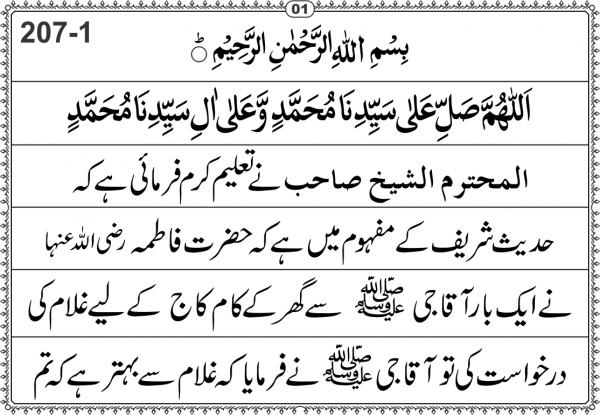 01
207-1
بِسْمِ اللهِ الرَّحْمٰنِ الرَّحِيْمِ ط
اَللّٰهُمَّ صَلِّ عَلٰى سَيِّدِنَا مُحَمَّدٍ وَّعَلٰى اٰلِ سَيِّدِنَا مُحَمَّدٍ
المحترم الشیخ صاحب نے تعلیم کرم فرمائی ہے کہ
حدیث شریف کے مفہوم میں ہے کہ حضرت فاطمہ رضی اللہ عنہا
نے ایک بار آقا جی ﷺ سے گھر کے کام کاج کے لیے غلام کی
درخواست کی تو آقا جی ﷺ نے فرمایا کہ غلام سے بہتر ہے کہ تم